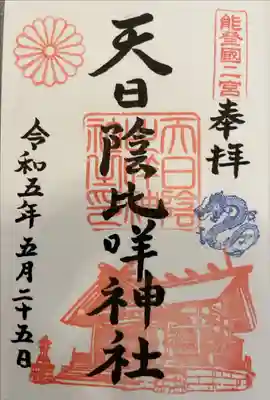 能登國二宮
奉拝
天日陰比咩神社
令和五年五月二十五日